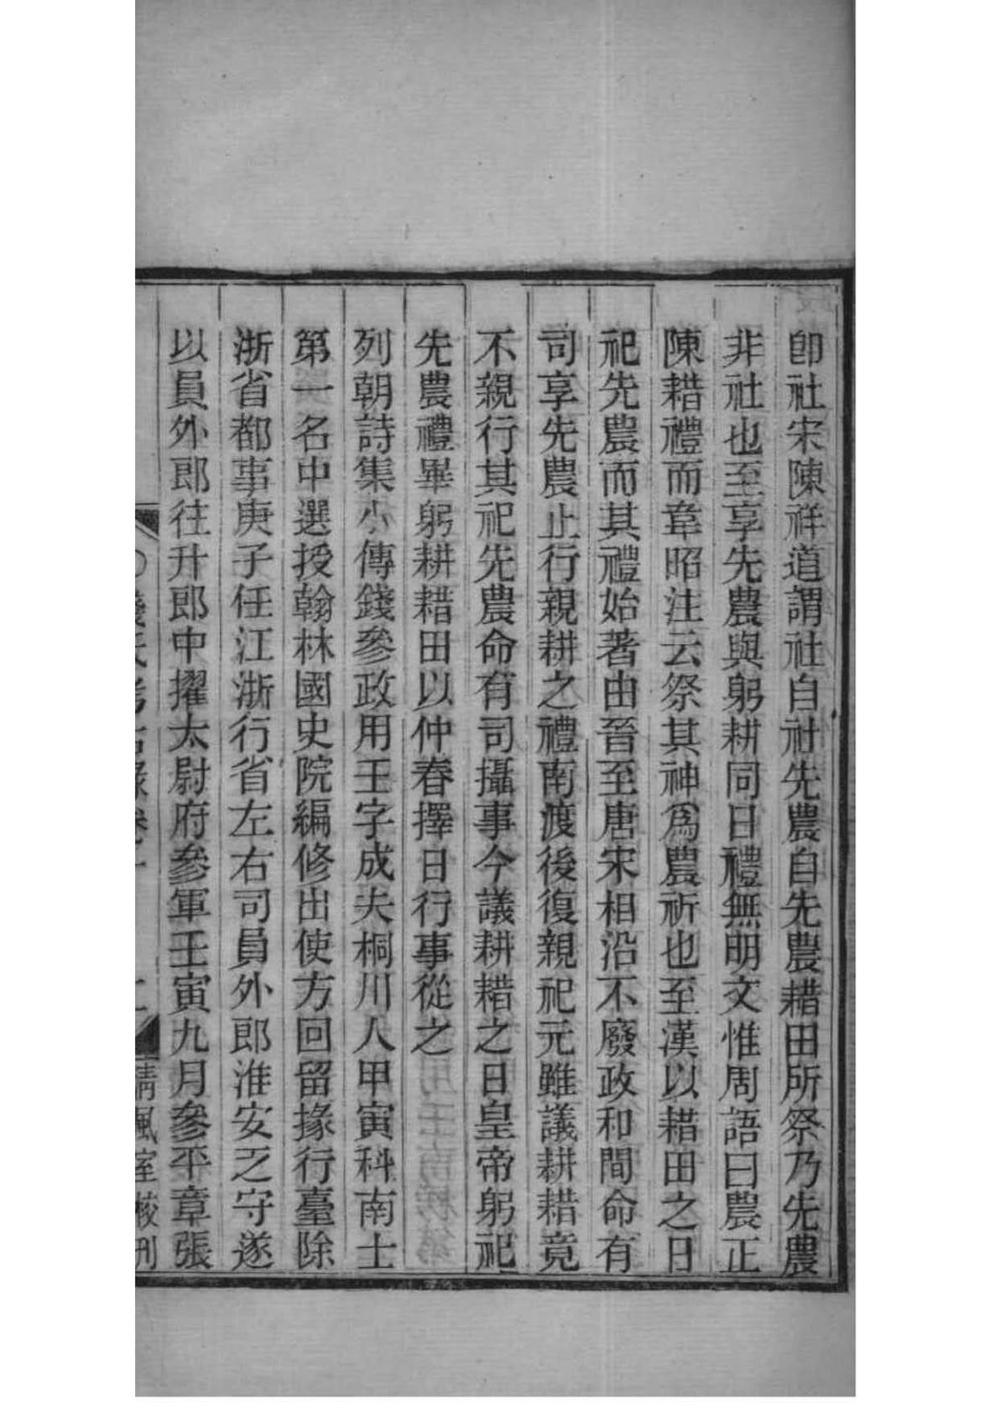 卽社宋陳祥道謂社自社先農自先農耤田所祭乃先農
非社也至享先農與躬耕同日禮無明文惟周語曰農正
陳耤禮而韋昭注云祭其神爲農祈也至漢以耤田之日
祀先農而其禮始著由晉至唐宋相沿不廢政和間命有
司享先農止行親耕之禮南渡後復親祀元雖議耕耤竟
不親行其祀先農命有司攝事今議耕耤之日皇帝躬祀
先農禮畢躬耕耤田以仲春擇日行事從之
列朝詩集小傳錢參政用壬字成夫桐川人甲寅科南士
第一名中選授翰林國史院編修出使方回留掾行臺除
浙省都事庚子任江浙行省左右司員外郎淮安乏守遂
以員外郎往升郎中擢太尉府參軍壬寅九月參平章張
清風室校刊